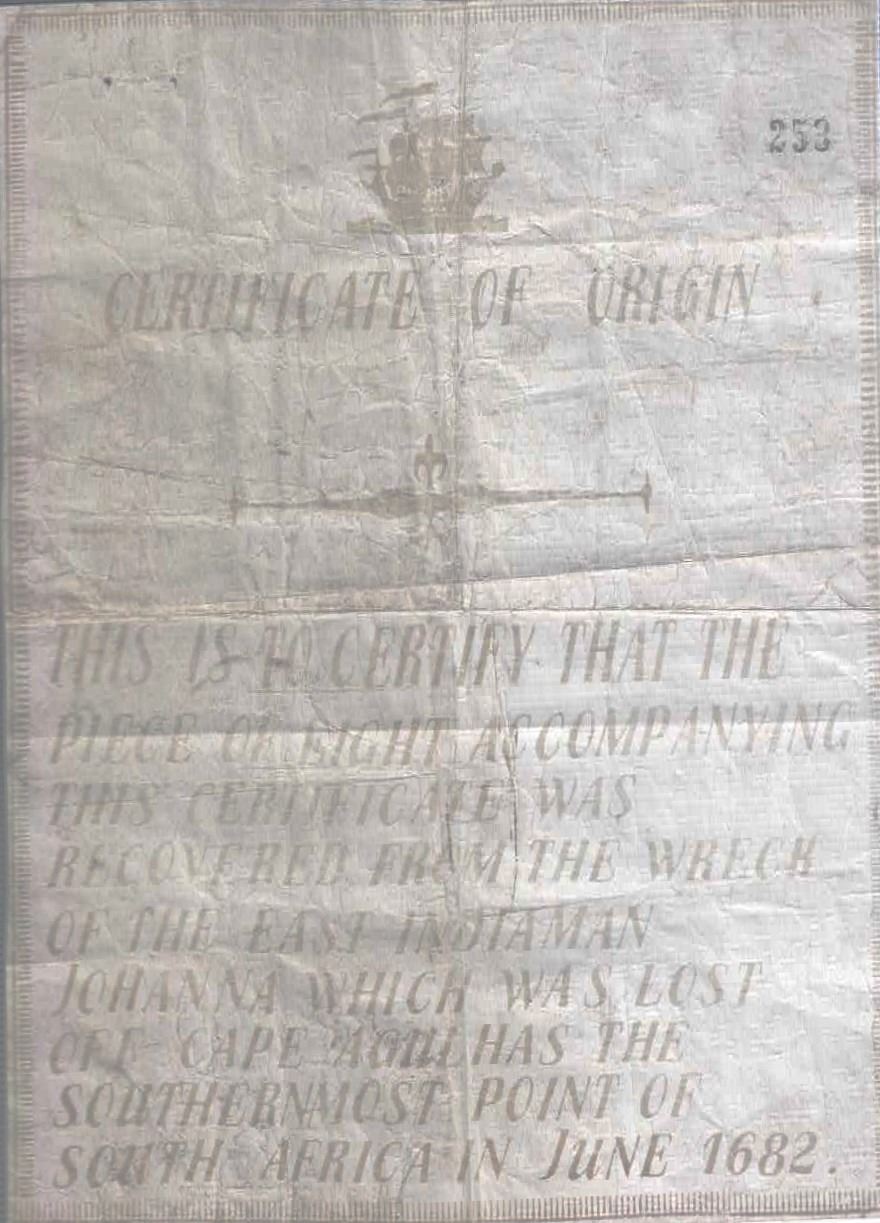 253
CERTIFICATE OF ORIGIN
THIS IS TO CERTIFY THAT THE
PIECE OF EIGHT ACCOMPANYING
THIS CERTIFICATE WAS
RECOVERED FROM THE WRECK
OF THE EAST INDIAMAN
JOHANNA WHICH WAS LOST
OFF CAPE AGULHAS THE
SOUTHERNMOST POINT OF
SOUTH AFRICA IN JUNE 1682.